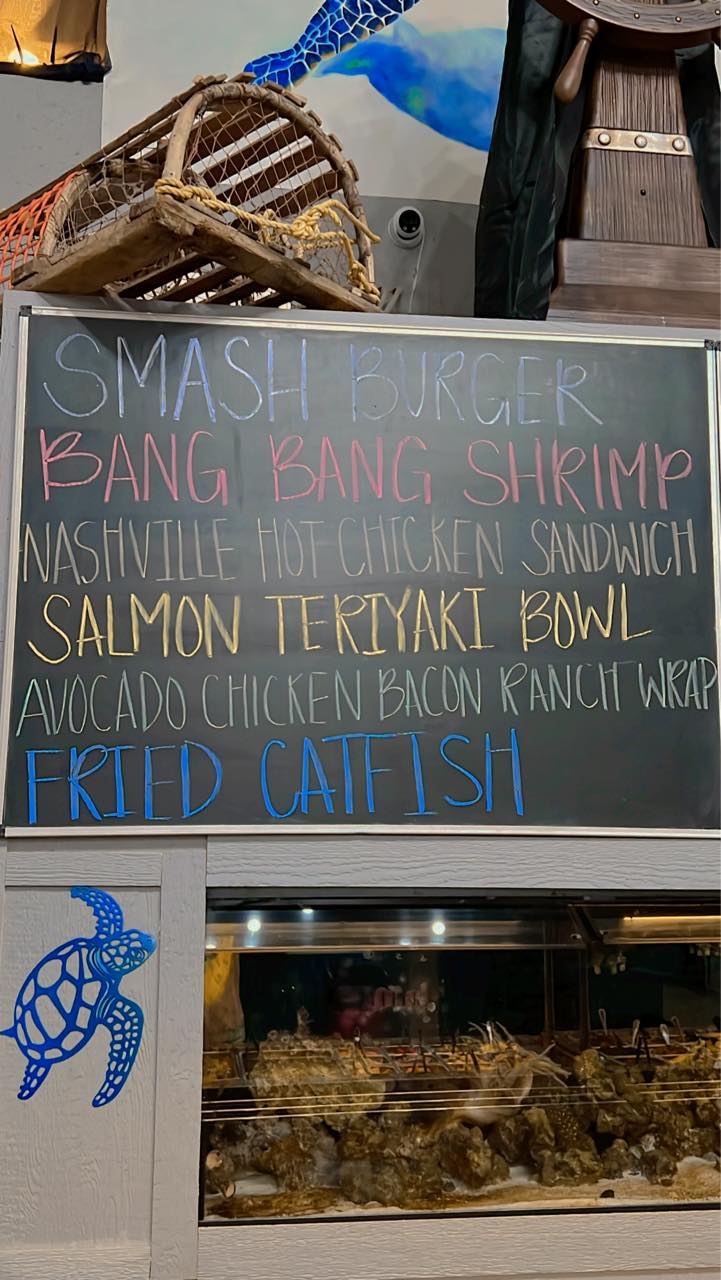 SMASH BURGER
BANG BANG SHRIMP
NASHVILLE HOT CHICKEN SANDWICH
SALMON TERIYAKI BOWL
AVOCADO CHICKEN BACON RANCH WRAP
FRIED CATFISH